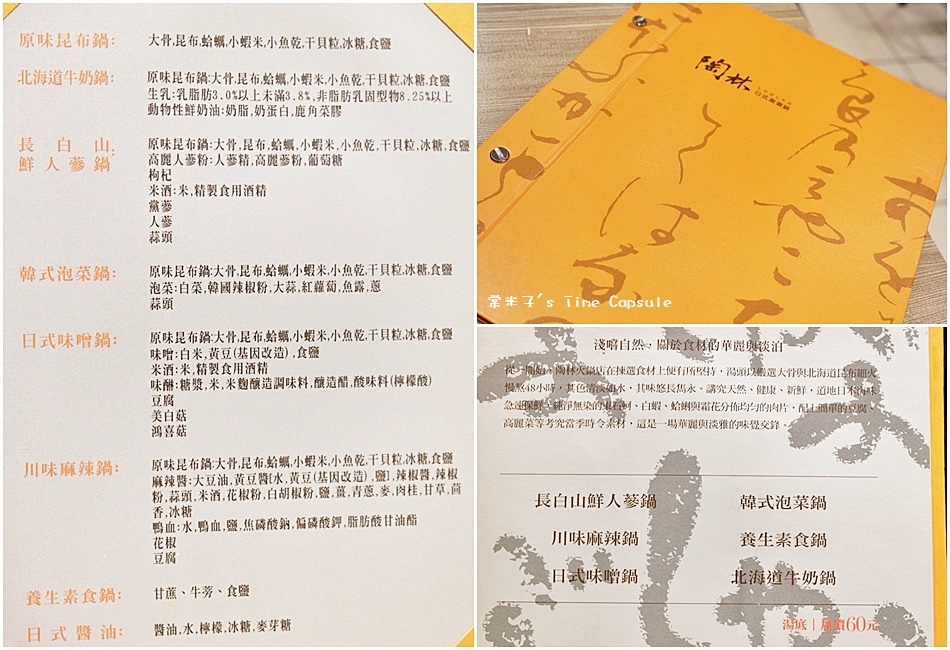 原味昆布鍋: 大骨,昆布,蛤蠣,小蝦米,小魚乾,干貝粒,冰糖,食鹽
北海道牛奶鍋: 原味昆布鍋:大骨,昆布,蛤蠣,小蝦米,小魚乾,干貝粒,冰糖,食鹽
生乳:乳脂肪3.0%以上未滿3.8%,非脂肪乳固型物8.25%以上
動物性鮮奶油:奶脂,奶蛋白,鹿角菜膠
長白山.
鮮人蔘鍋
原味昆布鍋:大骨,昆布,蛤蠣,小蝦米,小魚乾,干貝粒,冰糖,食鹽
高麗人蔘粉:人蔘精,高麗蔘粉,葡萄糖
枸杞
米酒:米,精製食用酒精
黨蔘
人蔘
蒜頭
韓式泡菜鍋: 原味昆布鍋:大骨,昆布,蛤蠣,小蝦米,小魚乾,干貝粒,冰糖,食鹽
泡菜:白菜,韓國辣椒粉,大蒜,紅蘿蔔,魚露,蔥
蒜頭
日式味噌鍋: 原味昆布鍋:大骨,昆布,蛤蠣,小蝦米,小魚乾,干貝粒,冰糖,食鹽
味噌:白米,黃豆(基因改造),食鹽
米酒:米,精製食用酒精
味醂:糖漿,米,米麴釀造調味料,釀造醋,酸味料(檸檬酸)
豆腐
美白菇
鴻喜菇
川味麻辣鍋: 原味昆布鍋:大骨,昆布,蛤蠣,小蝦米,小魚乾,干貝粒,冰糖,食鹽
麻辣醬:大豆油,黃豆醬[水,黃豆(基因改造),鹽],辣椒醬,辣椒
粉,蒜頭,米酒,花椒粉,白胡椒粉,鹽,薑,青蔥,麥,肉桂,甘草,茴
香,冰糖
鴨血:水,鴨血,鹽,焦磷酸鈉,偏磷酸鉀,脂肪酸甘油酯
花椒
豆腐
養生素食鍋: 甘蔗、牛蒡、食鹽
日式醬油: 醬油,水,檸檬,冰糖,麥芽糖
陶林
日式涮涮鍋
棠米子's Time Capsule
淺嚐自然‧關於食材的華麗與淡泊
從一開始，陶林火鍋店在揀選食材上便有所堅持，湯頭以嚴選大骨與北海道昆布細火
慢熬48小時，其色清淡如水，其味悠長雋永。講究天然、健康、新鮮，道地日本海味
急速保鮮，純淨無染的東石蚵、白蝦、蛤蜊與霜花分佈均勻的肉片，配上簡單的豆腐、
高麗菜等考究當季時令素材，這是一場華麗與淡雅的味覺交鋒。
長白山鮮人蔘鍋 韓式泡菜鍋
川味麻辣鍋 養生素食鍋
日式味噌鍋 北海道牛奶鍋
湯底｜加價60元